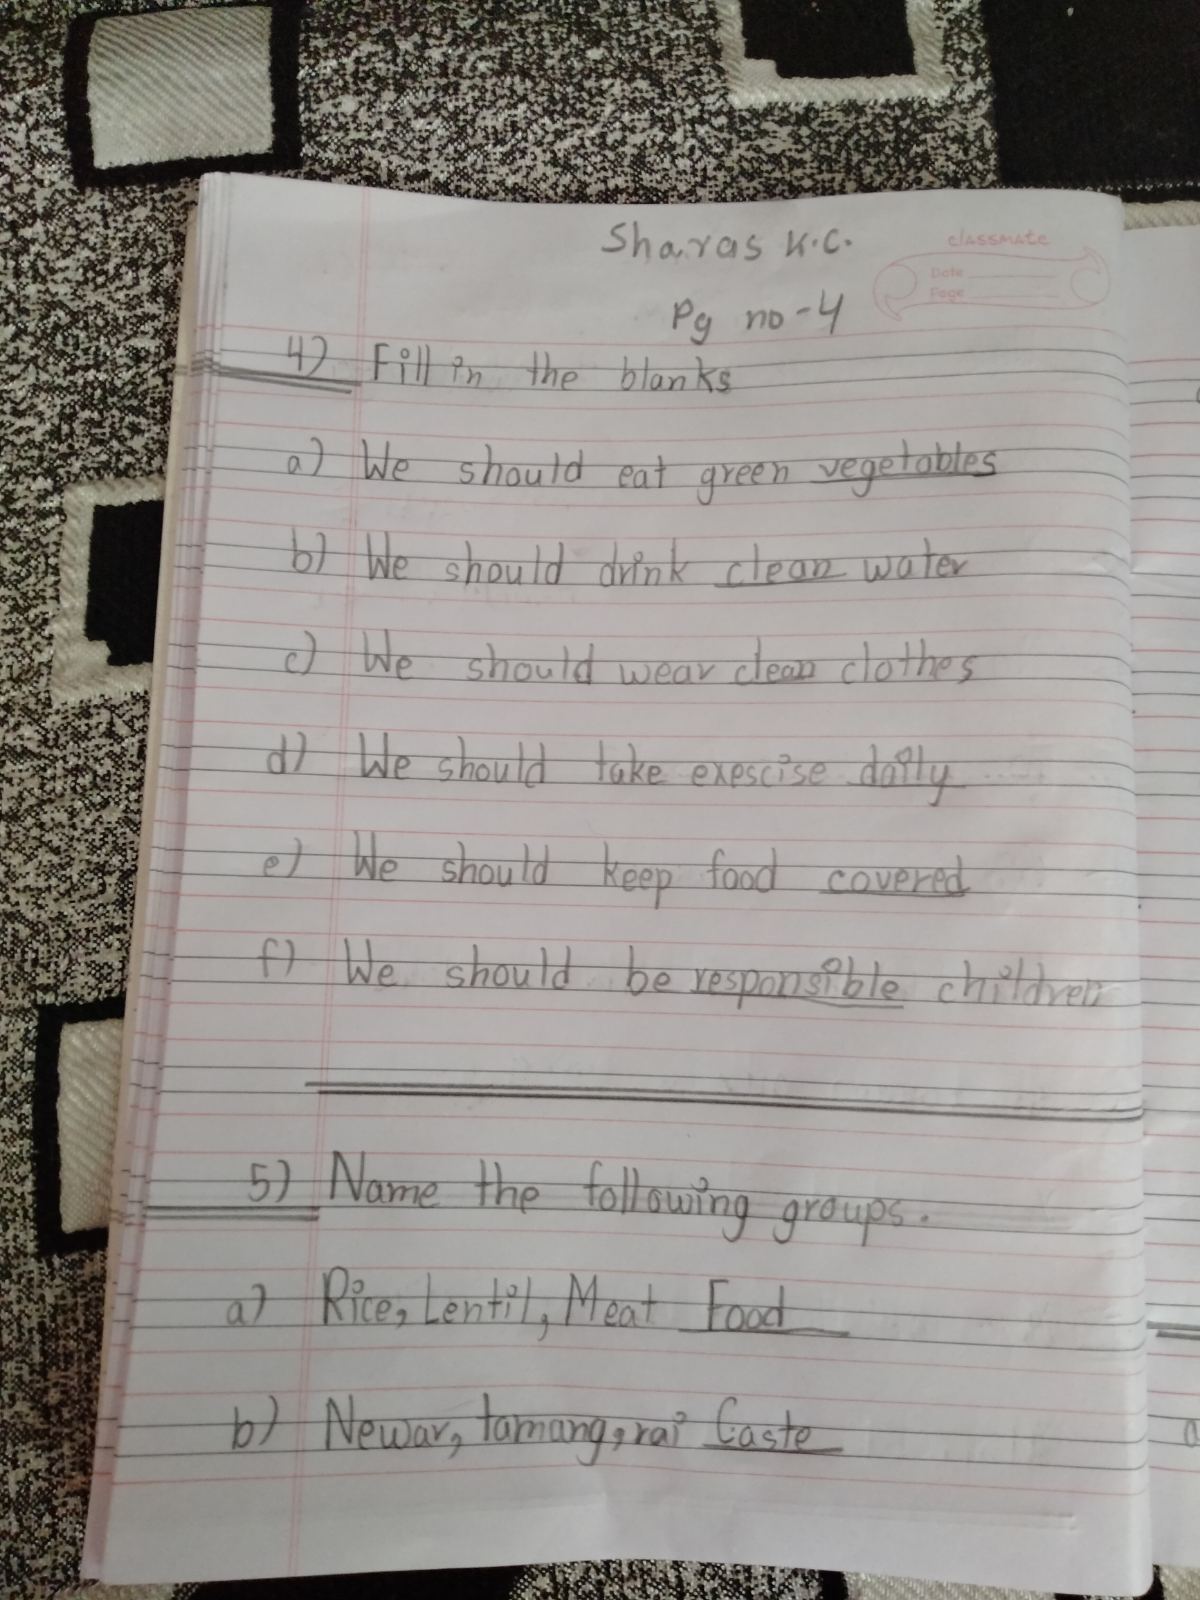 Sharas K.C.
classmate
Date
Page
Pg no-4
4) Fill in the blanks
a) We should eat green vegetables
b) We should drink clean water
c) We should wear clean clothes
d) We should take exescise daily
e) We should keep food covered
f) We should be responsible children
5) Name the following groups.
a) Rice, Lentil, Meat Food
b) Newar, tamang, rai Caste